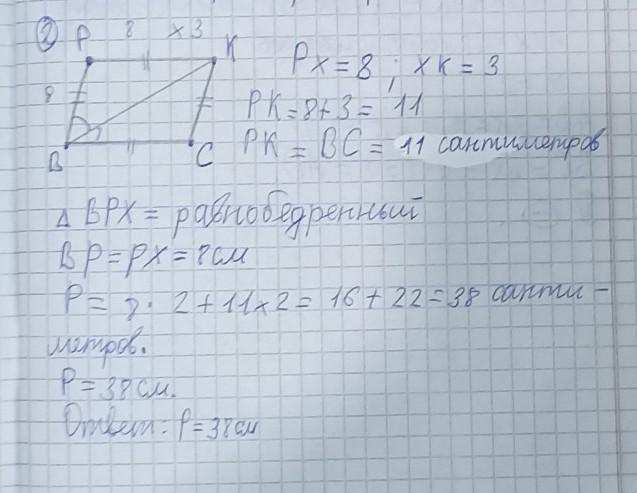 2 P 8 x 3 K
8
B C
PX = 8 ; XK = 3
PK = 8 + 3 = 11
PK = BC = 11 сантиметров
Δ BPX = равнобедренный
BP = PX = 8 см
P = 8 · 2 + 11 x 2 = 16 + 22 = 38 санти -
метров.
P = 38 см.
Ответ: P = 38 см